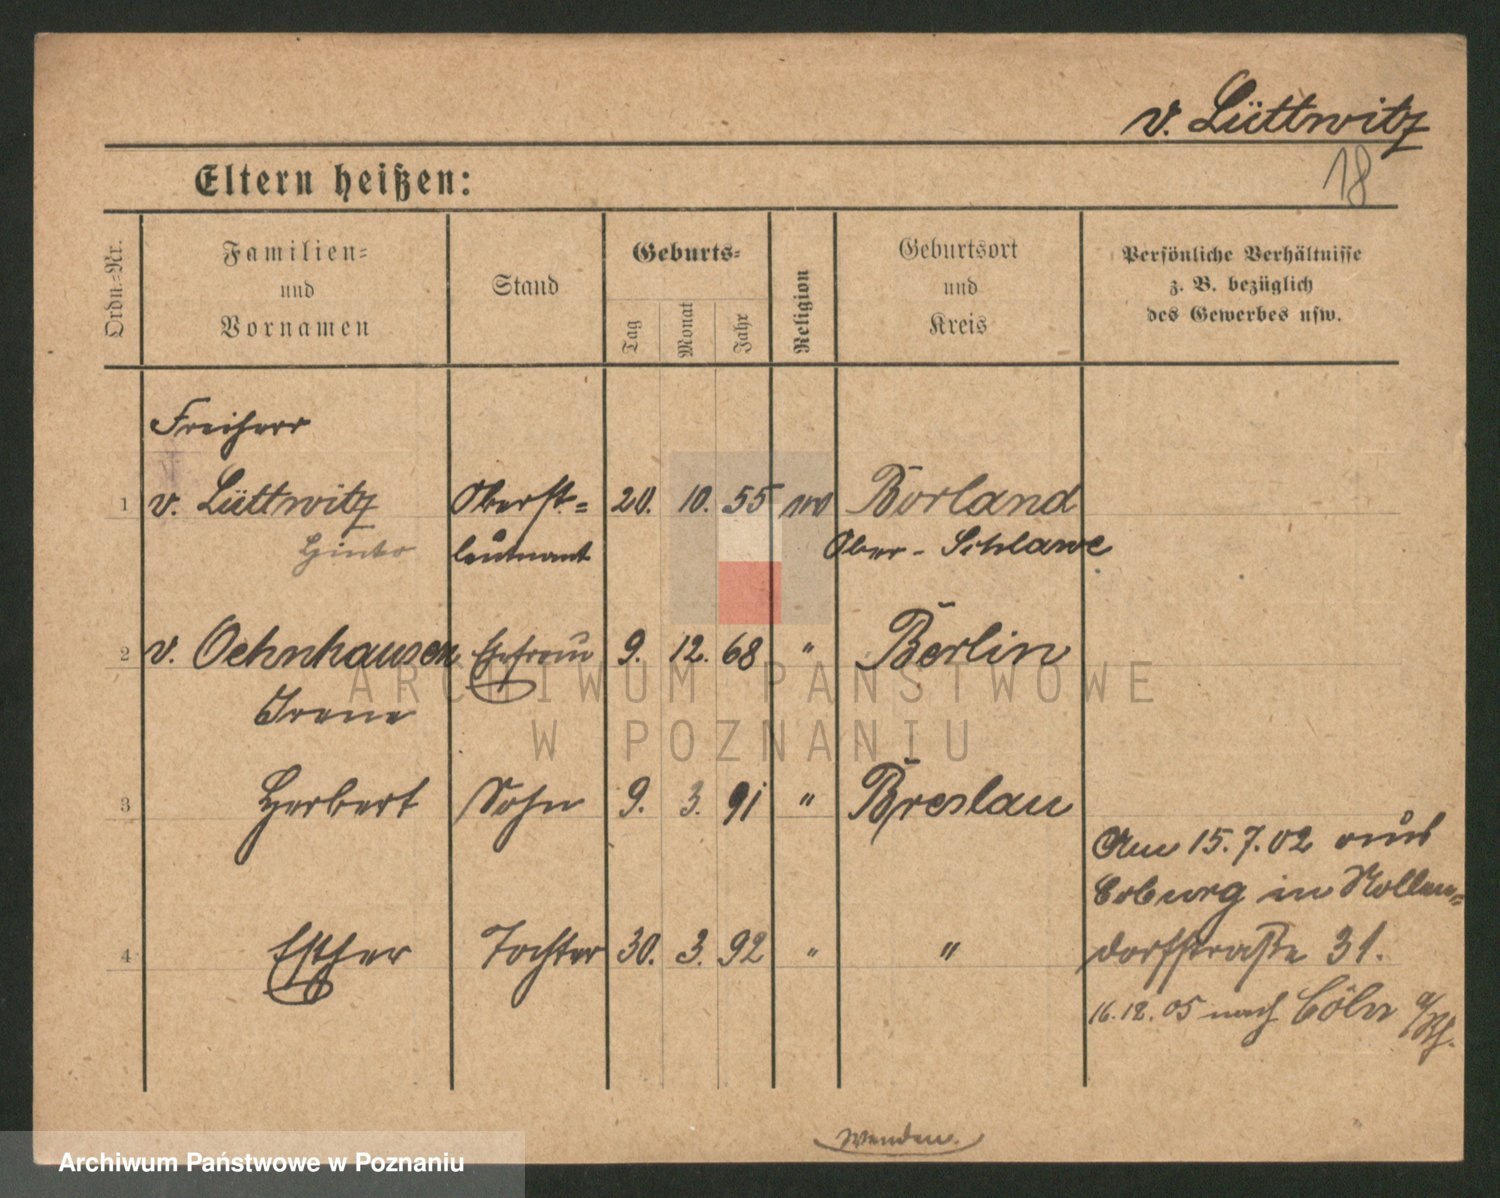 v. Lüttwitz
18
Eltern heißen:
Ordn.=Nr.
Familien=
und
Vornamen
Stand
Geburts=
Tag
Monat
Jahr
Religion
Geburtsort
und
Kreis
Persönliche Verhältnisse
z. B. bezüglich
des Gewerbes usw.
Freiherr
1 v. Lüttwitz Oberst= 20. 10. 55 Borland
leutnant Ober-Schlawe
2 v. Oehnhausen Ehefrau 9. 12. 68 " Berlin
Irene
3 Herbert Sohn 9. 3. 91 " Breslau
Am 15.7.02 aus
Coburg in Nollen=
4 Esther Tochter 30. 3. 92 " " dorfstraße 31.
16.12.05 nach Cöln a/Rh.
Wenden.
ARCHIWUM PAŃSTWOWE
W POZNANIU
Archiwum Państwowe w Poznaniu